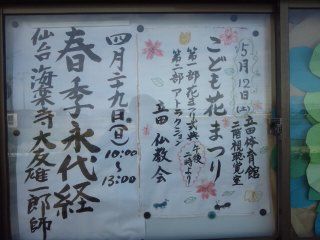 5月12日(土)
立田体育館
二階視聴覚室
こども花まつり
第一部 花まつり式典 午後一時より
第二部 アトラクション
立田仏教会
四月二十九日(日)
10:00
〜
13:00
春季永代経
仙台 海楽寺 大友雄一郎師